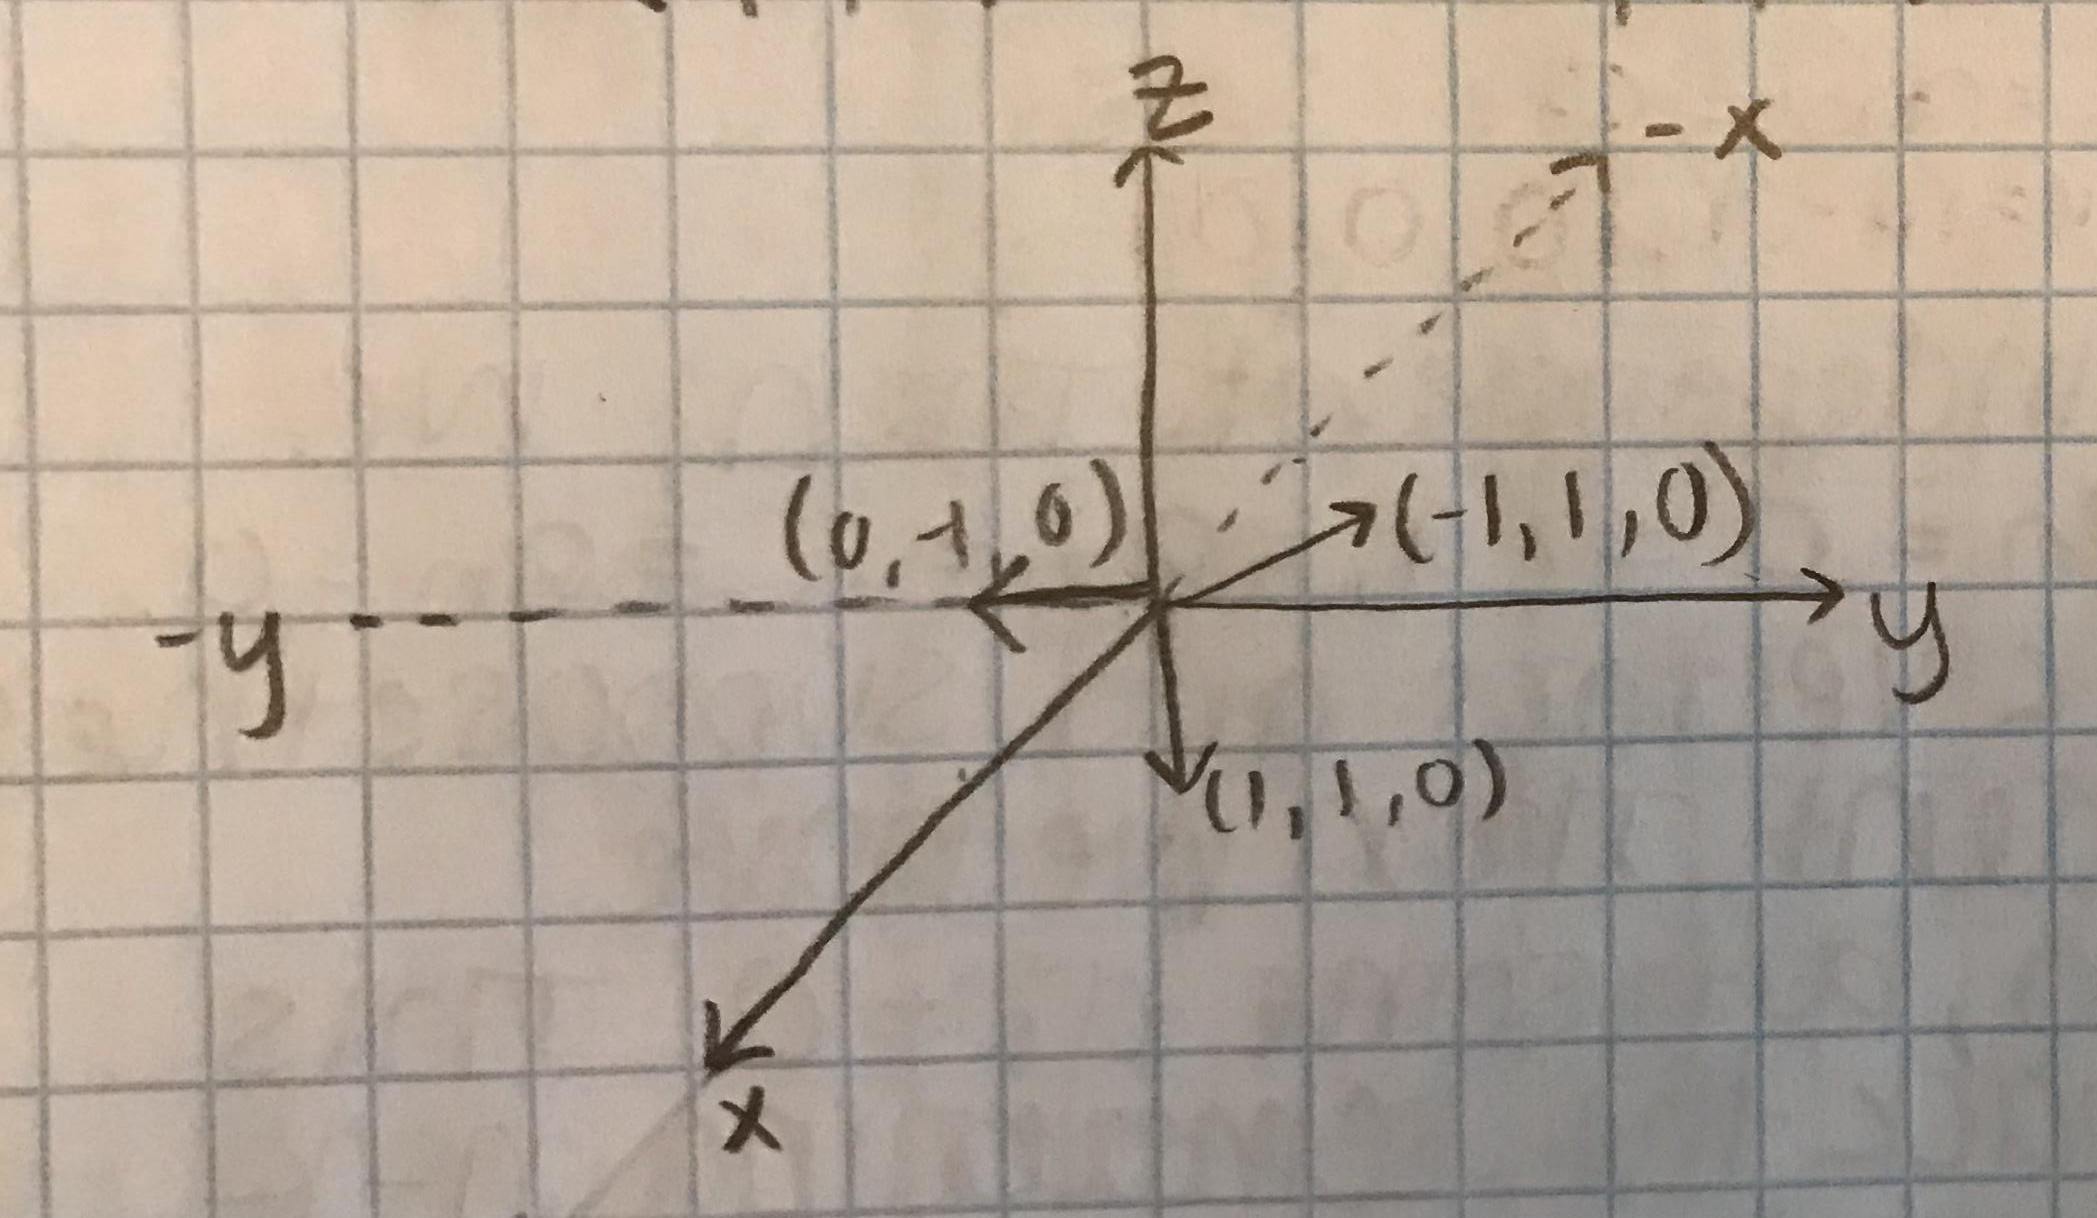 z
- x
(0, -1, 0)
(-1, 1, 0)
-y
y
(1, 1, 0)
x